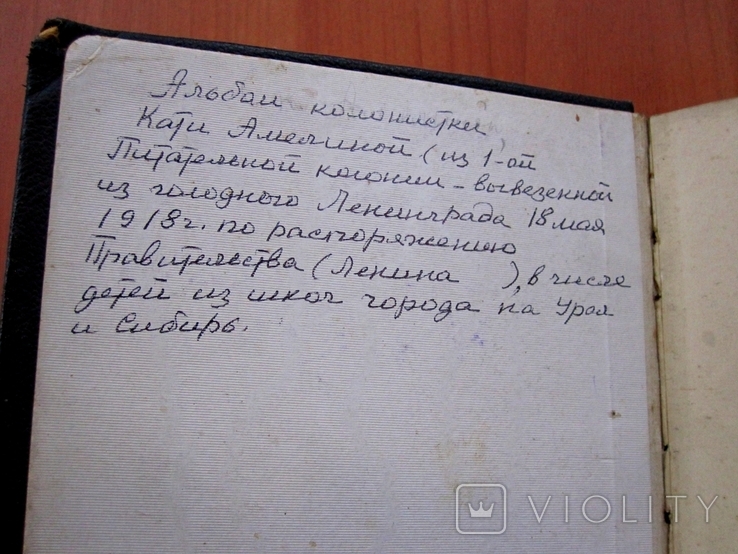 Альбом колонистки
Кати Амелиной (из 1-ой
Питательной колонии - вывезенной
из голодного Ленинграда 18 мая
1918г. по распоряжению
Правительства (Ленина ), в числе
детей из школ города на Урал
и Сибирь.
VIOLITY